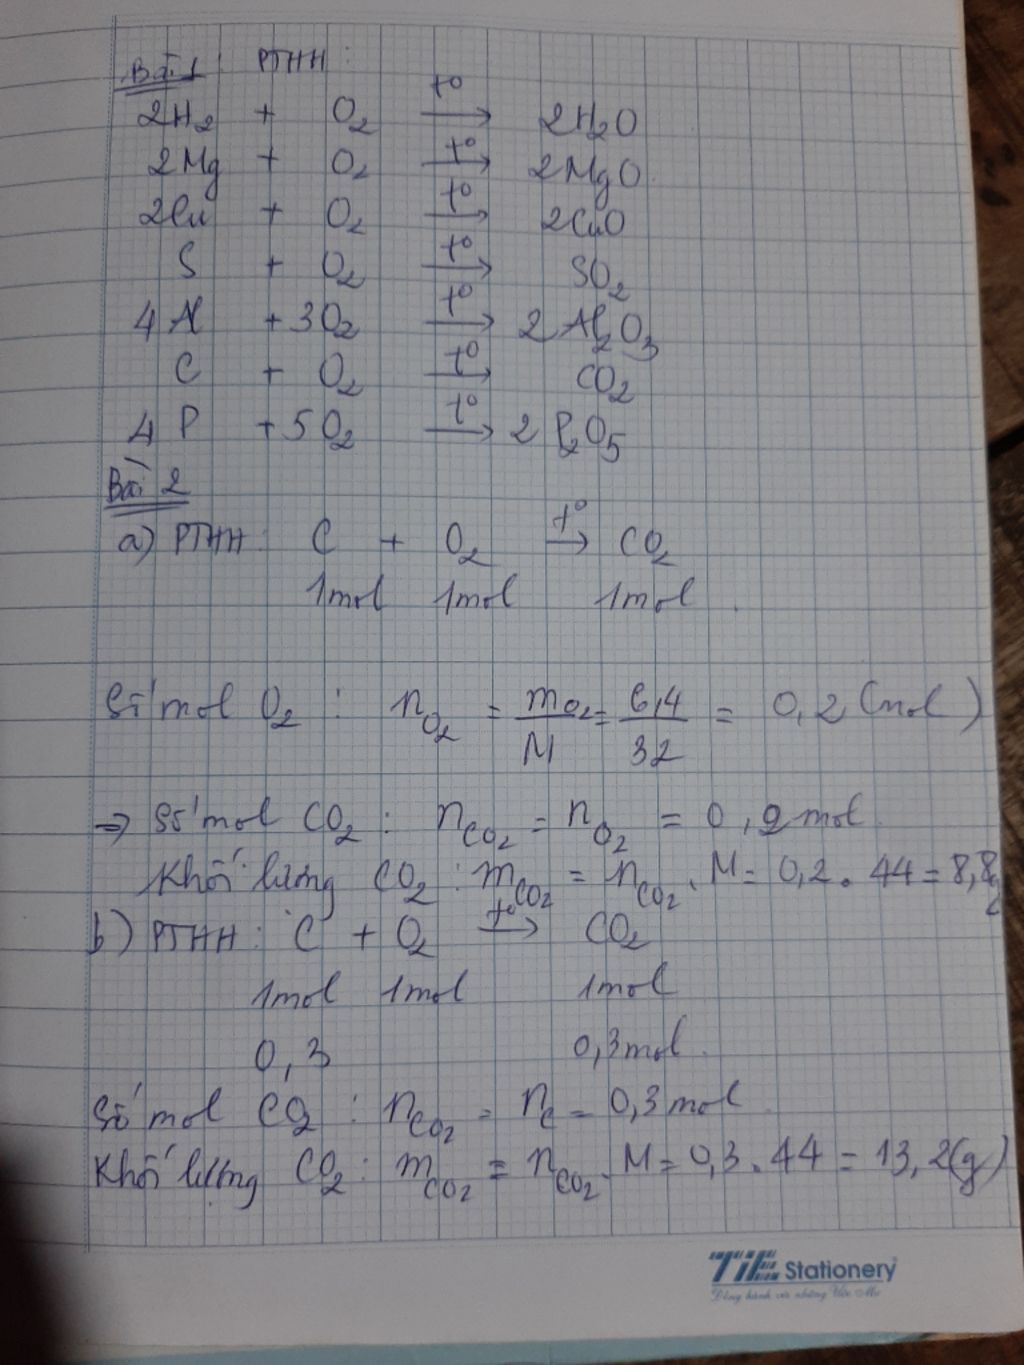 Bài 1 PTHH:
2H₂ + O₂ t° → 2H₂O
2Mg + O₂ t° → 2MgO
2Cu + O₂ t° → 2CuO
S + O₂ t° → SO₂
4 Al + 3O₂ t° → 2 Al₂O₃
C + O₂ t° → CO₂
4 P + 5O₂ t° → 2 P₂O₅
Bài 2
a) PTHH: C + O₂ t° → CO₂
1mol 1mol 1mol.
Số mol O₂ : n_O₂ = m_O₂/M = 6,4/32 = 0,2 (mol)
⇒ Số mol CO₂ : n_CO₂ = n_O₂ = 0,2 mol.
Khối lượng CO₂ : m_CO₂ = n_CO₂ . M = 0,2 . 44 = 8,8g
b) PTHH : C + O₂ t° → CO₂
1mol 1mol 1mol
0,3 0,3mol.
Số mol CO₂ : n_CO₂ = n_C = 0,3 mol.
Khối lượng CO₂ : m_CO₂ = n_CO₂ . M = 0,3 . 44 = 13,2(g)
TiE Stationery
Đồng hành với những Ước Mơ